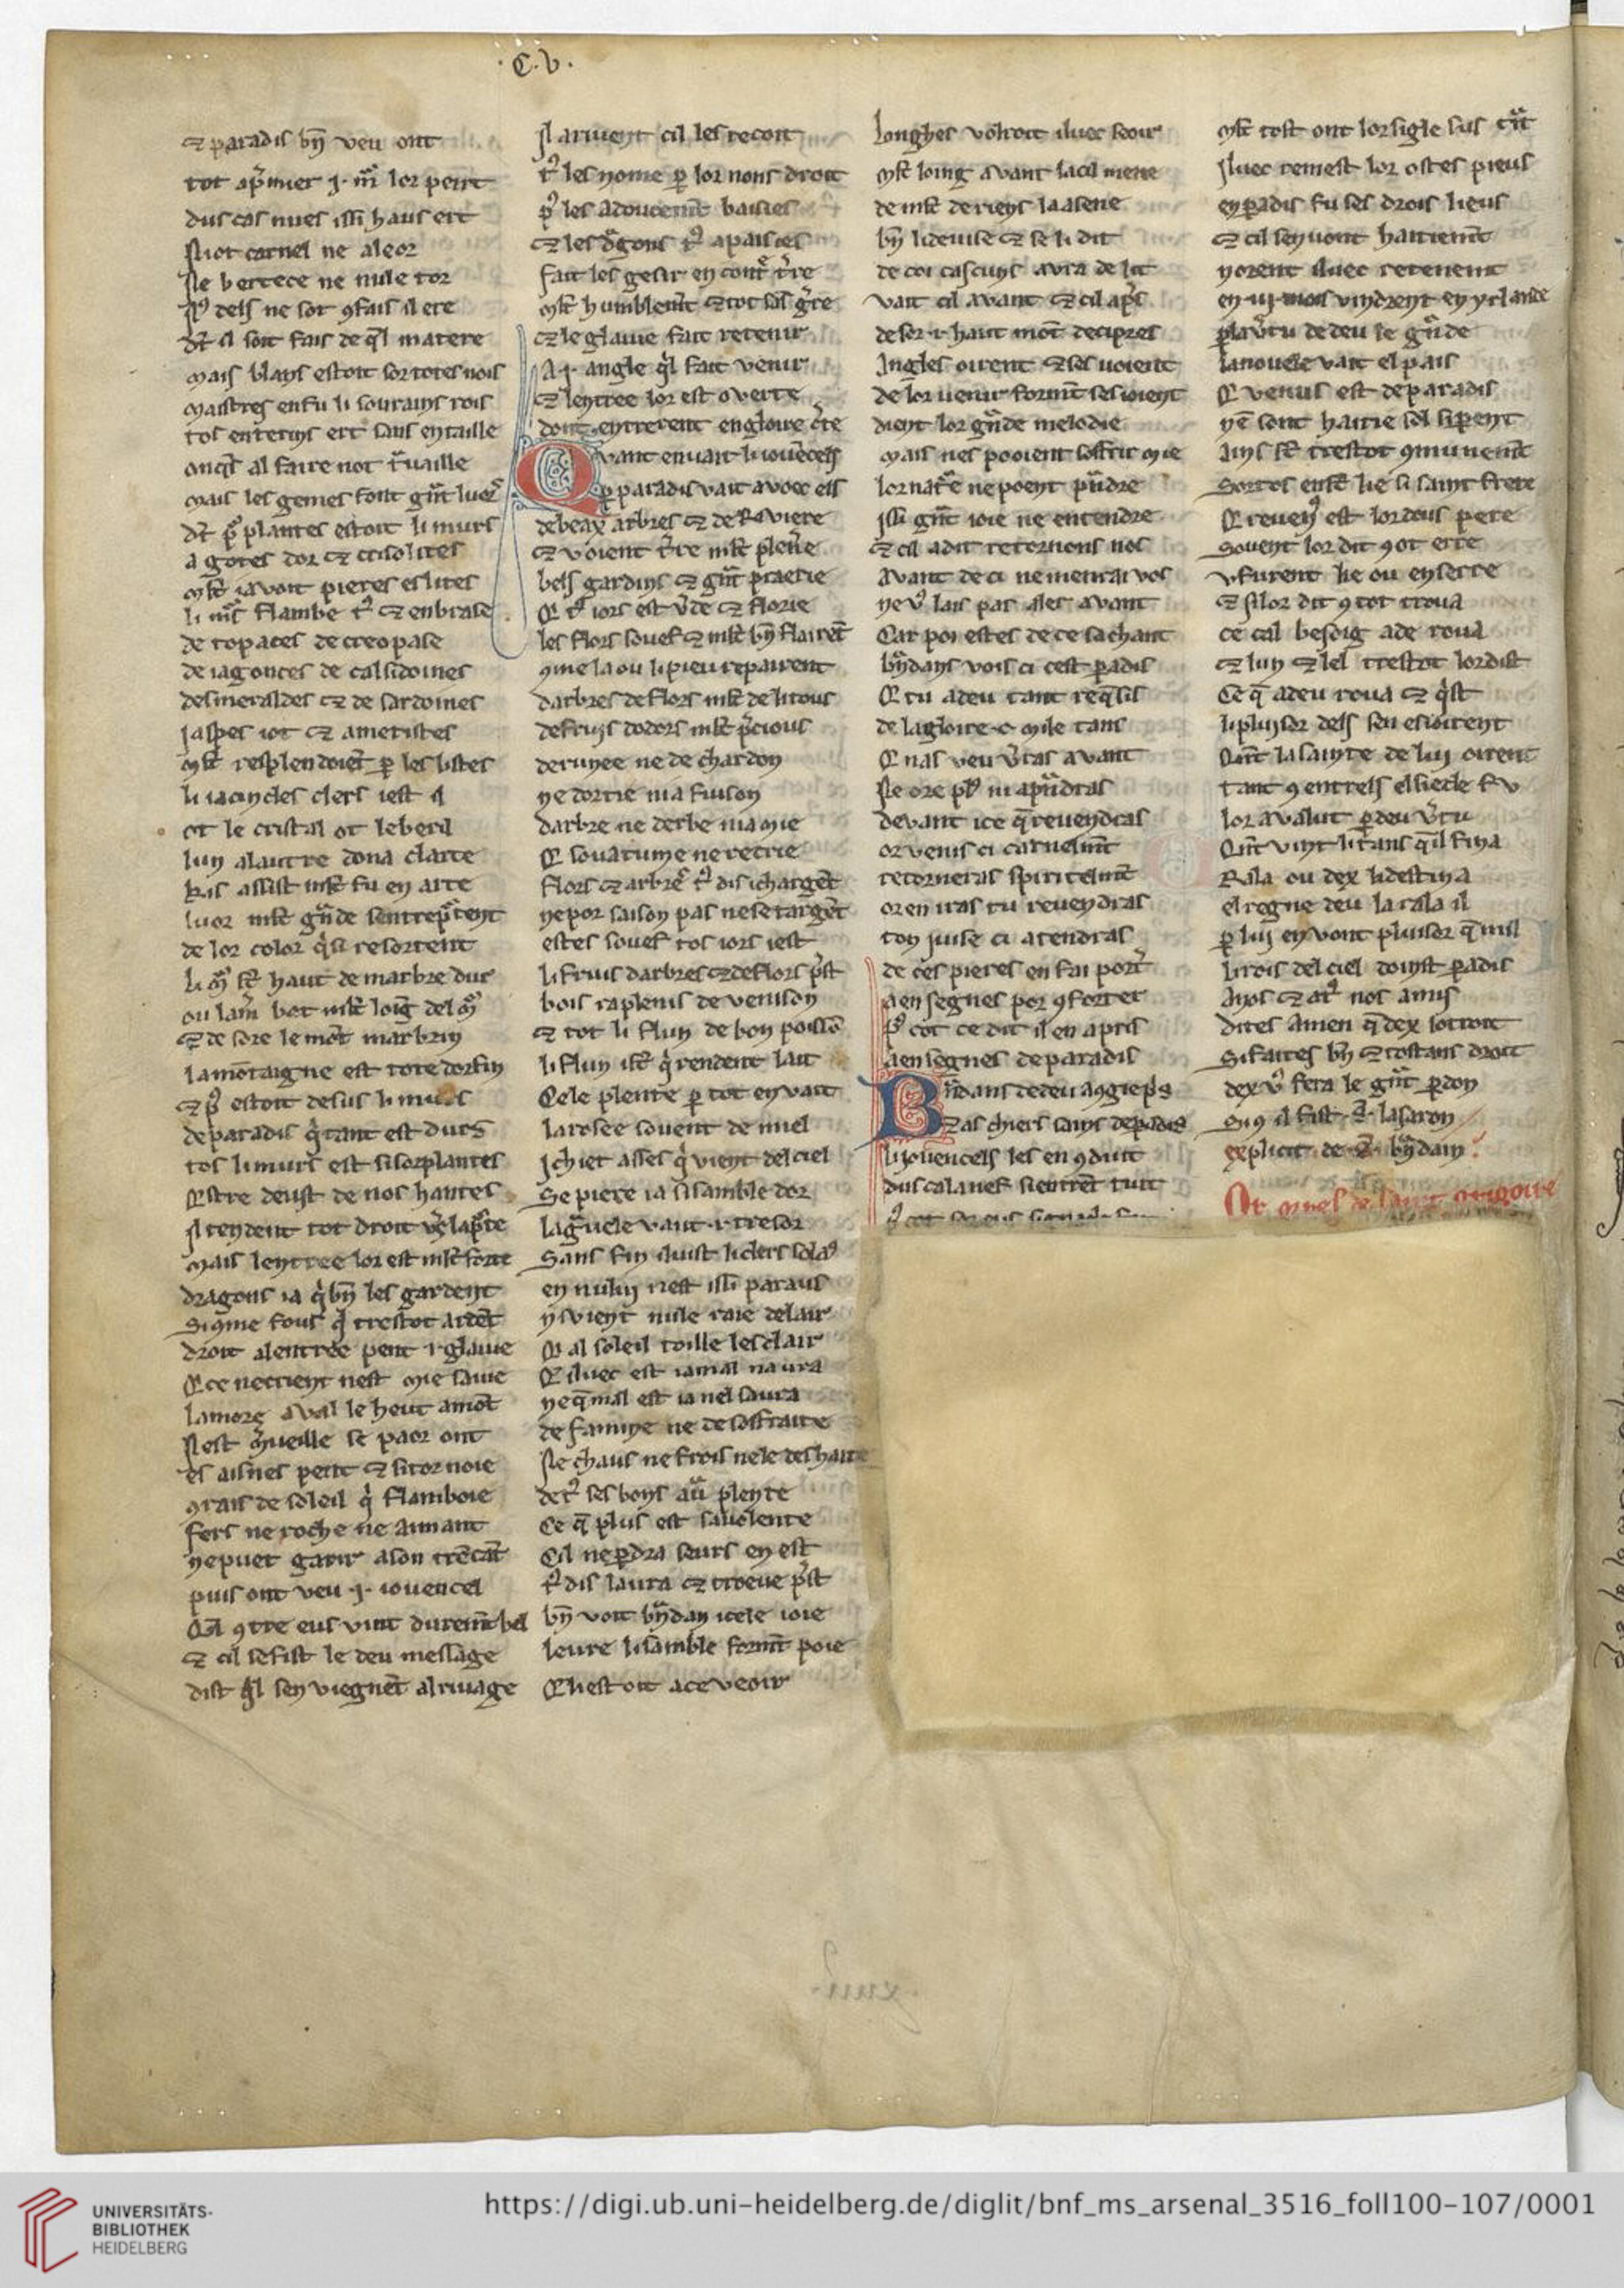 .C.v.
⁊ paradis bn̄ veu ont
tot ap̄ mier .j. mr̄ lor peirt
dus cas nues issi haus ert
Ni ot carnel ne aleor
Ne bertece ne nule tor
dels ne sot ꝯfais il ere
il soit fais de ql matere
mais blans estoit sor totes nois
maistres en fu li sourains rois
tos enterins ert sans entaille
al faire not tuaille
mais les gemes font gnt luor
plantes estoit li murs
a gotes dor ⁊ crisolites
mlt i avoit pieres eslites
li murs flambe ⁊ enbrase
de topaces de creopase
de iagonces de calsidoines
desmeraldes ⁊ de sardoines
jaspes iot ⁊ ametistes
mlt resplendoiēt ꝑ les listes
li iacincles clers iest il
ot le cristal ot le beril
lun a lautre dona clarte
Kis assist mlt fu en arte
luor mlt gnde sentreptent
de lor color qsi resortent
li mō st haut de marbre dur
ou lam bat mlt loig del mr
⁊ de sore le mōt marbrin
la mōtaigne est tote dorfin
⁊ estoit desus li murs
de paradis q tant est durs
tos li murs est si sorplantes
Estre deust de nos hantes
Il tendent tot droit vs la pte
mais lentree lor est mlt forte
dragons ia q bn̄ les gardent
Si ꝯme fous q trestot ardēt
droit a lentree pent .i. glaive
E ce ne crient nest mie saive
lamore aval le heut amōt
Nest mveille se paor ont
es aisnes pent ⁊ si tornoie
ꝯ rais de soleil q flamboie
fers ne roche ne aimant
ne puet garir a son trēcāt
puis ont veu .j. iovencel
Q ꝯtre eus vint duremēt bel
⁊ cil se fist le deu message
dist ql sen viegnēt al rivage
Il arivent cil les recoit
les nome ꝑ lor nons droit
les adoucemēt baisies
⁊ les dgons apaisies
fait les gesir en contre tre
mlt humblemt ⁊ tot sās gre
⁊ le glaive fait retenir
A .j. angle ql fait venir
⁊ lentree lor est overte
dont entrerent en gloire cte
Qvant en vait li iovēcels
ꝑ paradis vait avoec els
de beax arbres ⁊ de Riviere
⁊ voient tre mlt plenre
bels gardins ⁊ gnt praerie
Q iors est vde ⁊ florie
les flors souef ⁊ mlt bn̄ flairēt
ꝯme la ou li pieu repairent
darbres de flors mlt delitous
de fruis dodors mlt pcious
de runce ne de chardon
ne dortie ni a fuison
darbre ne derbe ni a mie
E souatume ne recrie
flors ⁊ arbre dis ichargēt
ne por saison pas ne se targēt
estes souef tos iors iest
li fruis darbres ⁊ de flors pst
bois raplenis de venison
⁊ tot li flun de bon poissō
li flun st q rendent lait
Cele plente ꝑ tot en vait
la rosee souent de miel
Ichiet asses q vient del ciel
Se piere ia si samble dor
la gvele vaut .i. tresor
Sans fin iluist li clers solas
en nului nest issi paraus
ni vient nule raie del air
Q al soleil toille lesclair
E iluec est iamal naura
ne q mal est ia nel saura
de famine ne de soffraite
Ne chaus ne frois ne le deshaite
de ses bons au plente
Ce q plus est sa volente
Cil ne pdra seurs en est
dis laura ⁊ troeve pst
bn̄ voit bndan icele ioie
leure li samble formt poie
Q li estoit a ce veoir
longhes voltroit iluec seoir
mlt loing avant la cil mene
de mlt de riens la asene
bn̄ li devise ⁊ se li dit
de coi cascuns avra delit
vait cil avant ⁊ cil aps
desor .i. haut mōt de cipres
Angles oirent ⁊ ses voient
de lor venir formt sesioient
dient lor gnde melodie
mais nes pooient soffrir mie
lor nate ne poent pndre
Issi gnt ioie ne entendre
⁊ cil a dit retornons nos
avant de ci ne menrai vos
ne vs lais pas ales avant
Car poi estes de ce sachant
bndans vois ci cest ꝑadis
E tu a deu tant reqsis
de la gloire .c. mile tans
E nas veu vras avant
Ne ore pls ni apndras
devant ice q revendras
or venis ci carnelmt
retorneras spiritelmt
or en iras tu revendras
ton iuise ci atendras
de ces pieres en fai porter
a ensegnes por ꝯforter
tot ce dit il en a pris
a ensegnes de paradis
Bndans de deu a ꝯgie ps
⁊ as chiers sains de padis
li iovencels les en ꝯduit
dus cala nef si entrēt tuit
mlt tost ont lor sigle sus trt
Iluec remest lor ostes pieus
en padis fu ses drois lieus
⁊ cil sen vont haitiemt
norent iluec retenemt
en .iij. mois vindrent en yrlande
ꝑ la vtu de deu le gnde
la novele vait el pais
E venus est de paradis
nē sont haitie sol si pent
Ains st trestot ꝯmunemt
Sor tos en st lie li saint frere
E reven est lor dous pere
Sovent lor dit ꝯ ot erre
v furent lie ou en serre
⁊ si lor dit ꝯ tot trova
ce cal besoig a de rova
⁊ lun ⁊ lel trestot lor dist
Ce q a deu rova ⁊ qst
li pluisor dels sen esioirent
Qnt la sainte de lui oirent
tant ꝯ entrels el siecle fu
lor a valut ꝑ deu vtu
Qnt vint li tans qil fina
Rala ou dex li destina
el regne deu la rala il
ꝑ lui en vont pluisor q mil
li rois del ciel doinst ꝑadis
A nos ⁊ a nos amis
dites amen q dex lotroit
Si faites bn̄ ⁊ tostans droit
dex vs fera le gnt ꝑdon
Si ꝯ il fist .s. lasaron
explicit de .s. bndain.
UNIVERSITÄTS-
BIBLIOTHEK
HEIDELBERG
https://digi.ub.uni-heidelberg.de/diglit/bnf_ms_arsenal_3516_foll100-107/0001